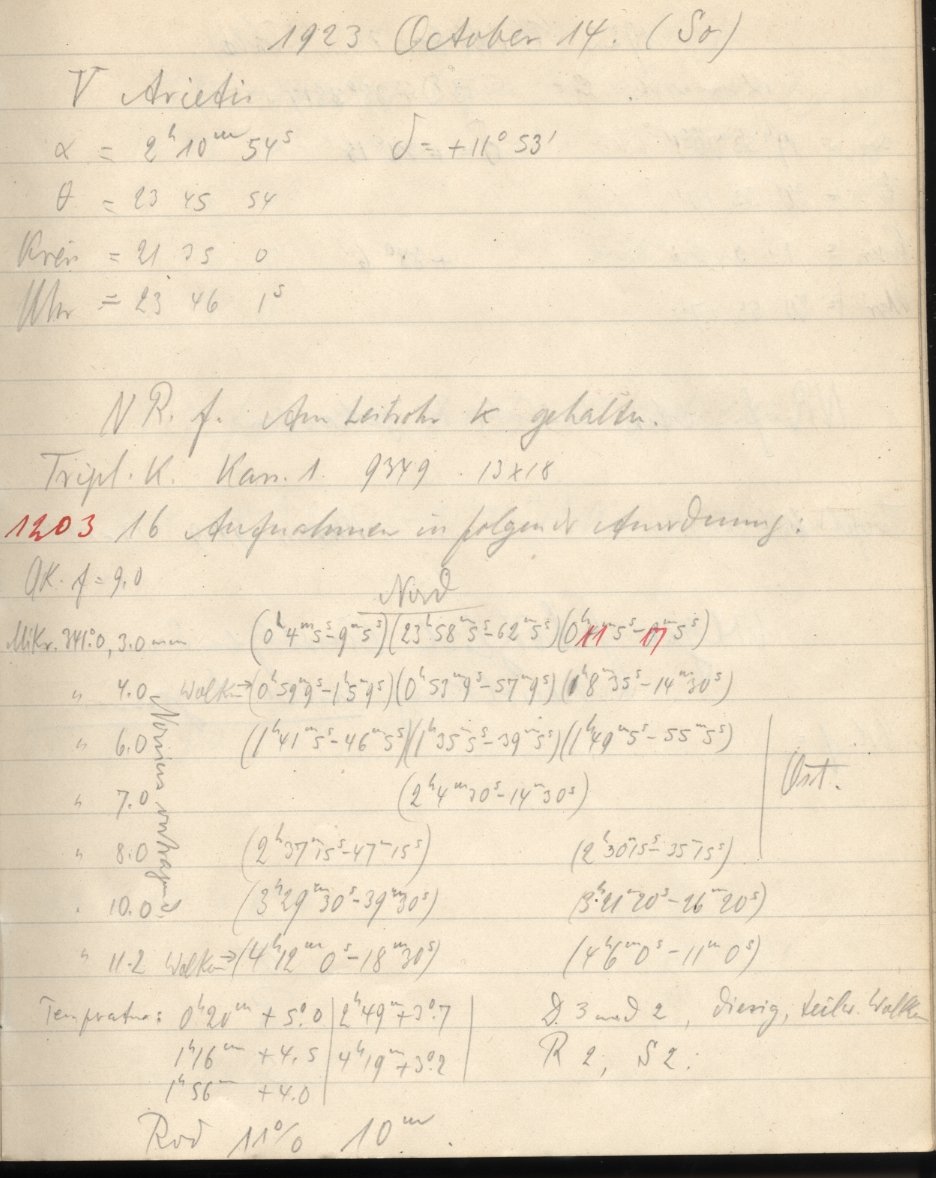 1923 October 14. (So)
V Arietis
α = 2ʰ 10ᵐ 54ˢ δ = +11° 53'
θ = 23 45 54
Kreis = 21 35 0
Uhr = 23 46 1ˢ
N R. f. Am Leitrohr K gehalten.
Tripl. K. Kass. 1. 9349 . 13x18
1203 16 Aufnahmen in folgender Anordnung:
OK. f = 9.0
Nord
Mikr. 341°.0, 3.0 mm (0ʰ4ᵐ5ˢ-9ᵐ5ˢ) (23ʰ58ᵐ5ˢ-62ᵐ5ˢ) (0ʰ11ᵐ5ˢ-17ᵐ5ˢ)
" 4.0 Wolken→(0ʰ59ᵐ9ˢ-1ʰ5ᵐ9ˢ) (0ʰ53ᵐ9ˢ-57ᵐ9ˢ) (1ʰ8ᵐ35ˢ-14ᵐ30ˢ)
" 6.0 (1ʰ41ᵐ5ˢ-46ᵐ5ˢ) (1ʰ35ᵐ5ˢ-39ᵐ5ˢ) (1ʰ49ᵐ5ˢ-55ᵐ5ˢ)
Ost.
" 7.0 (2ʰ4ᵐ30ˢ-14ᵐ30ˢ)
" 8.0 (2ʰ37ᵐ15ˢ-47ᵐ15ˢ) (2ʰ30ᵐ15ˢ-35ᵐ15ˢ)
" 10.0 (3ʰ29ᵐ30ˢ-39ᵐ30ˢ) (3ʰ21ᵐ20ˢ-26ᵐ20ˢ)
" 11.2 Wolken→(4ʰ12ᵐ0ˢ-18ᵐ30ˢ) (4ʰ6ᵐ0ˢ-11ᵐ0ˢ)
Nonius
Temperatur: 0ʰ20ᵐ + 5°.0 | 2ʰ49ᵐ +3°.7 | D. 3 und 2, diesig, teilw. Wolken
1ʰ16ᵐ +4.5 | 4ʰ19ᵐ +3°.2 | R 2, S 2.
1ʰ56ᵐ +4.0
11% 10ᵐ.